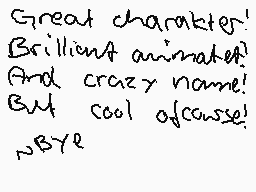 Great charakter!
Brilliant animatet!
And crazy name!
But cool ofcousse!
~Bye